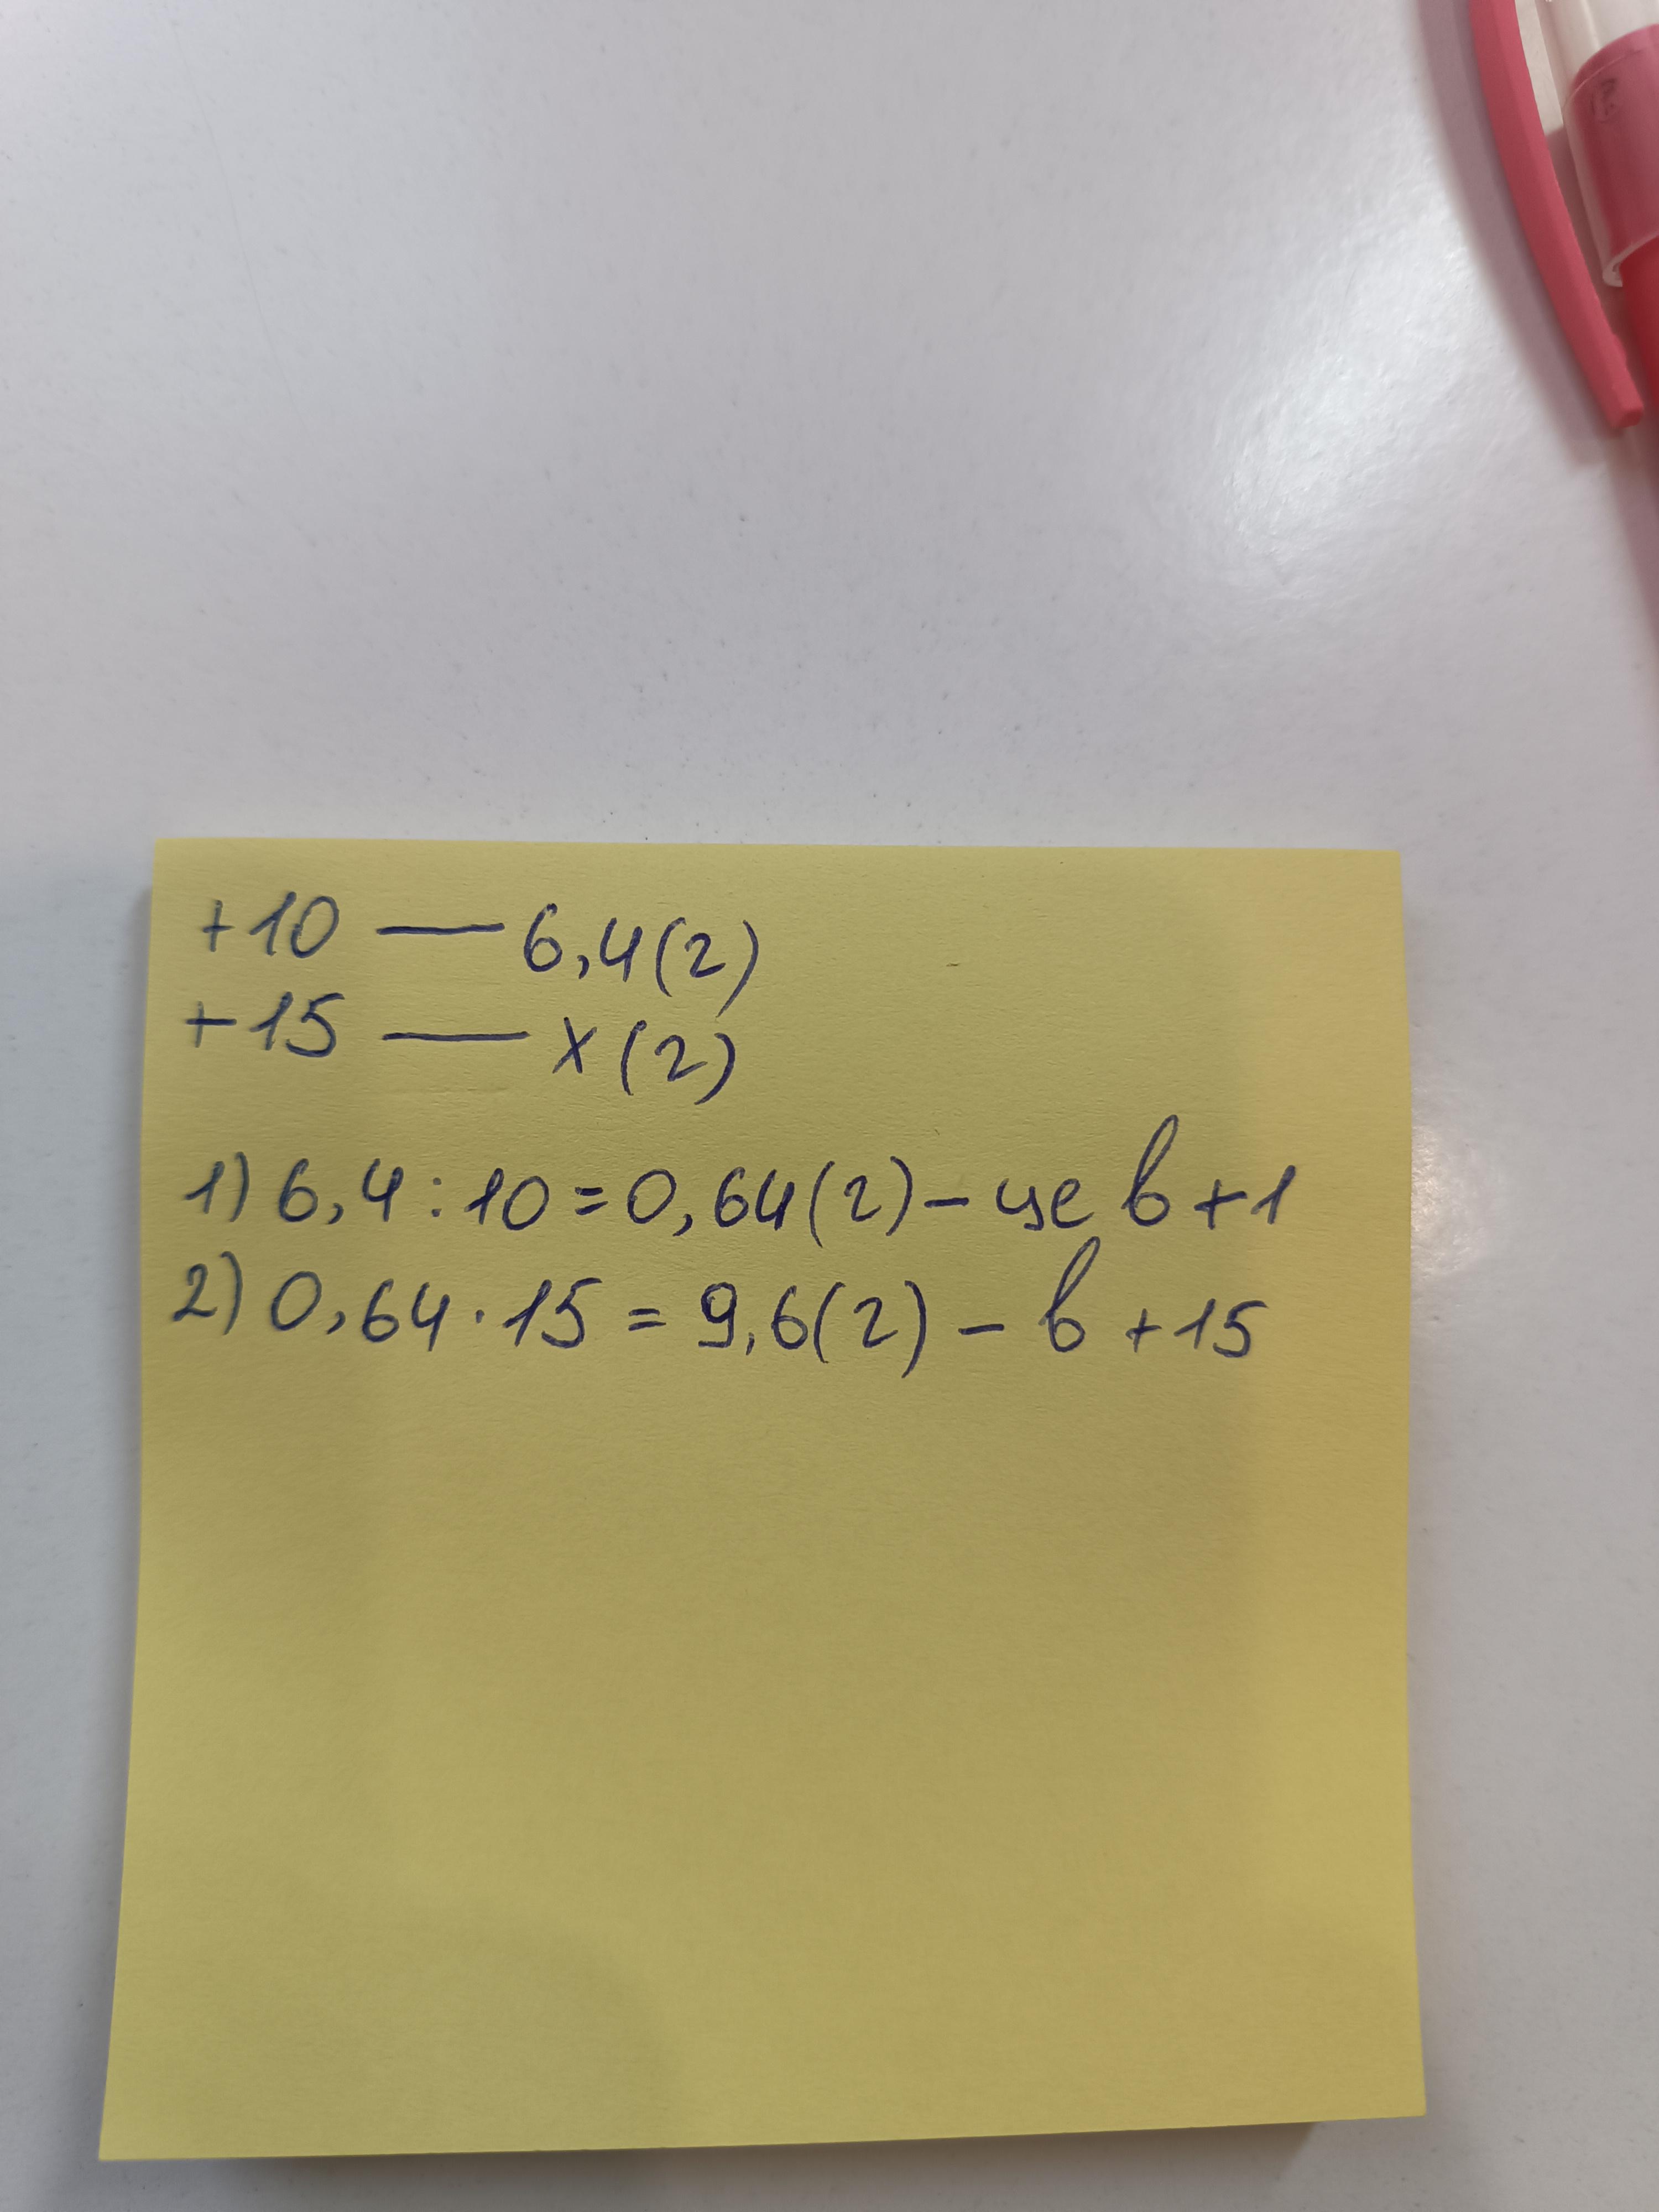 +10 — 6,4(г)
+15 — х(г)
1) 6,4:10=0,64(г)– це в +1
2) 0,64·15 = 9,6(г) – в +15